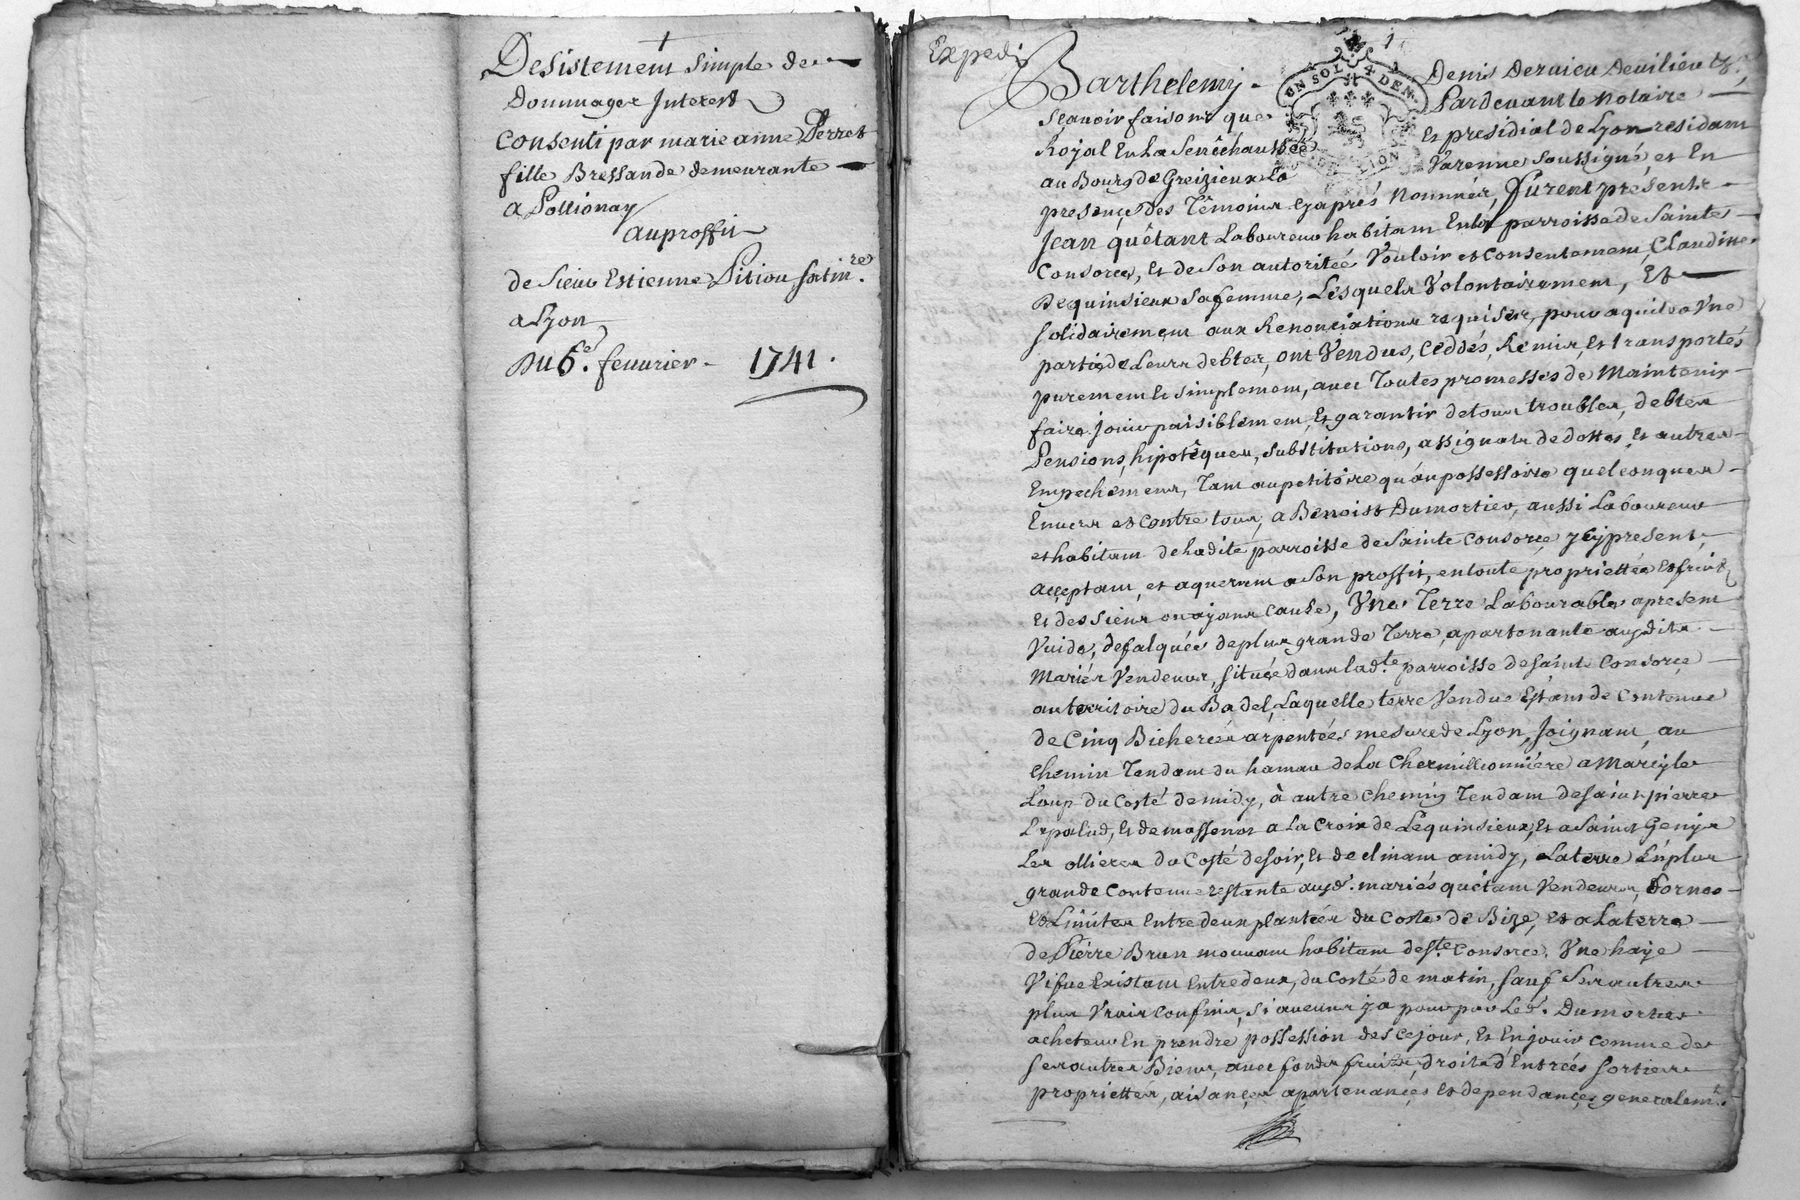 Desistement simple de
Dommages Interest
Consenti par marie anne Perret
fille Bressande demeurante
a Pollionay
au proffit
de Sieur Estienne Pitiou satin.re
a Lyon
Du 6.e feuurier - 1741.
Expedié
1
UN SOL 4 DEN.
LION
Barthelemy Denis Dervieu Deuilieu &c
Sçauoir faisons que Pardeuant le Notaire
Royal En La Senéchaussée Et presidial de Lyon residant
au Bourg de Greizieu La Varenne soussigné et En
presence des Témoins cyaprés Nommés, Furent présents
Jean quêtant Laboureur habitant En la parroisse de Sainte
Consorce, Et de Son autoritée Vouloir et Consentement, Claudine
Dequinsieux Sa femme, Lesquels Volontairement, Et
Solidairement aux Renonciations requises, pour aquiter Vne
partie de Leurs debtes, ont Vendus, Ceddés, Remis, Et transportés
purement Et simplement, auec Toutes promesses de Maintenir
faire Jouir paisiblement, Et garantir de tous troubles, debtes
Pensions, hipotêques, substitutions, assignats de dottes, Et autres
Empechemens, Tant au petitoire qu'au possessoire quelconques
Enuers et Contre tous, a Benoist Dumortier, aussi Laboureur
et habitant de Ladite parroisse de Sainte Consorce, Icy present,
acceptant, et aquerant a Son proffit, en toute propriettée Et fruits
Et des Siens ou ayans cause, Vne Terre Labourable apresent
Vuide, defalquée de plus grande Terre, apartenante auxdits
Mariés Vendeurs, Située dans lad.te parroisse de Sainte Consorce
au territoire du Badel, Laquelle terre Vendue Estant de Contenue
de Cinq Bicherées arpentées mesure de Lyon, Joignant, au
Chemin Tendant du hamau de La Chermillionniere a Marcy le
Loup du Costé de midy, à autre Chemin Tendant de Saint pierre
Lapalud, Et de massenot a La Croix de Lequinsieux, Et a Saint Genys
Les ollieres du Costé de soir, Et declinant amidy, a La terre En plus
grande Contenue restante auxd. mariés quétant Vendeurs, Bornes
Et Limites Entre deux plantées du Costé de Bize, Et a La terre
de Pierre Brun mouuant habitant de S.te Consorce, Vne haye
Viue Existant Entre deux, du Costé de matin, Sauf Ses autres
plus Vrais Confins, Si aucuns y a pour par Led. Dumortier
acheteur En prendre possession dès ce jour, Et En jouir comme de
Ses autres Biens, auec fonds fruits, droits d'Entrées Sorties
propriettés, aisances apartenances Et dependances generalem.t